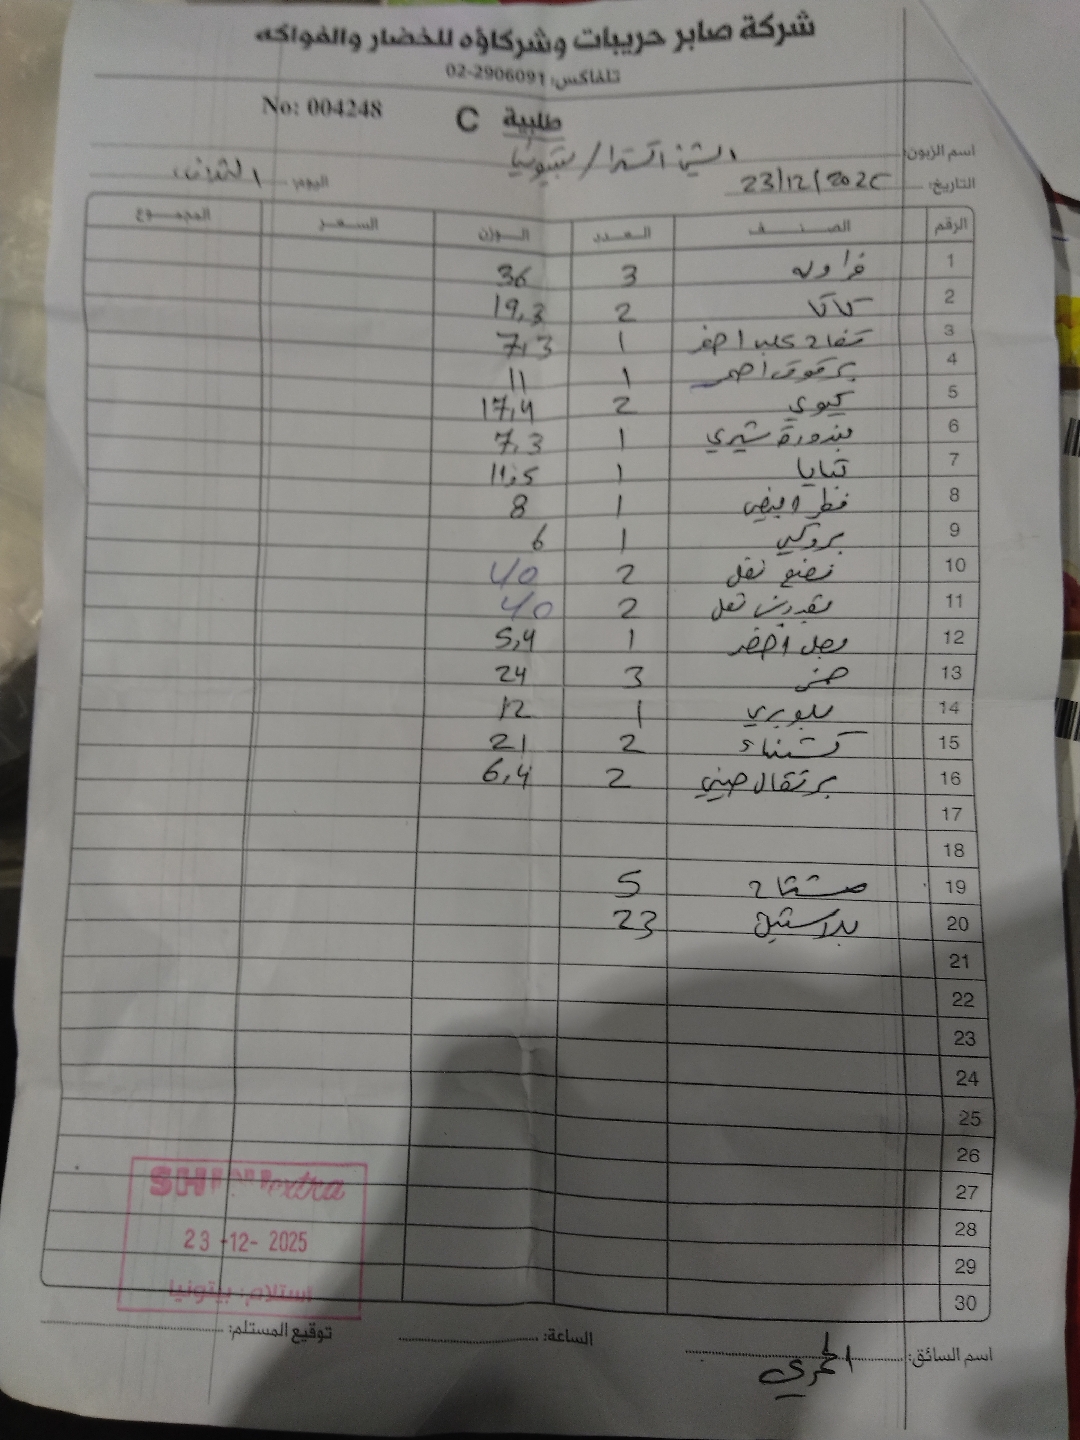 شركة صابر حريبات وشركاؤه للخضار والفواكه
تلفاكس: 02-2906091
No: 004248
طلبية C
اسم الزبون: الشني اكسترا / بيتونيا
التاريخ: 23/12/2025 اليوم: الثلاثاء
الرقم الصنف العدد الوزن السعر المجموع
1 فراوله 3 36
2 كاكا 2 19,3
3 تفاح اخضر 1 7,3
4 برقوق احمر 1 11
5 كيوي 2 17,4
6 بندورة شيري 1 7,3
7 1 11,5
8 فطر ابيض 1 8
9 بروكلي 1 6
10 نعنع 2 40
11 بقدونس 2 40
12 بصل اخضر 1 5,4
13 خس 3 24
14 بلوبري 1 12
15 كستناء 2 21
16 برتقال صيني 2 6,4
17
18
19 مشتاح 5
20 بلاستيك 23
21
22
23
24
25
26
27
28
29
30
SHINI extra
23-12-2025
استلام: بيتونيا
اسم السائق: الساعة: توقيع المستلم: